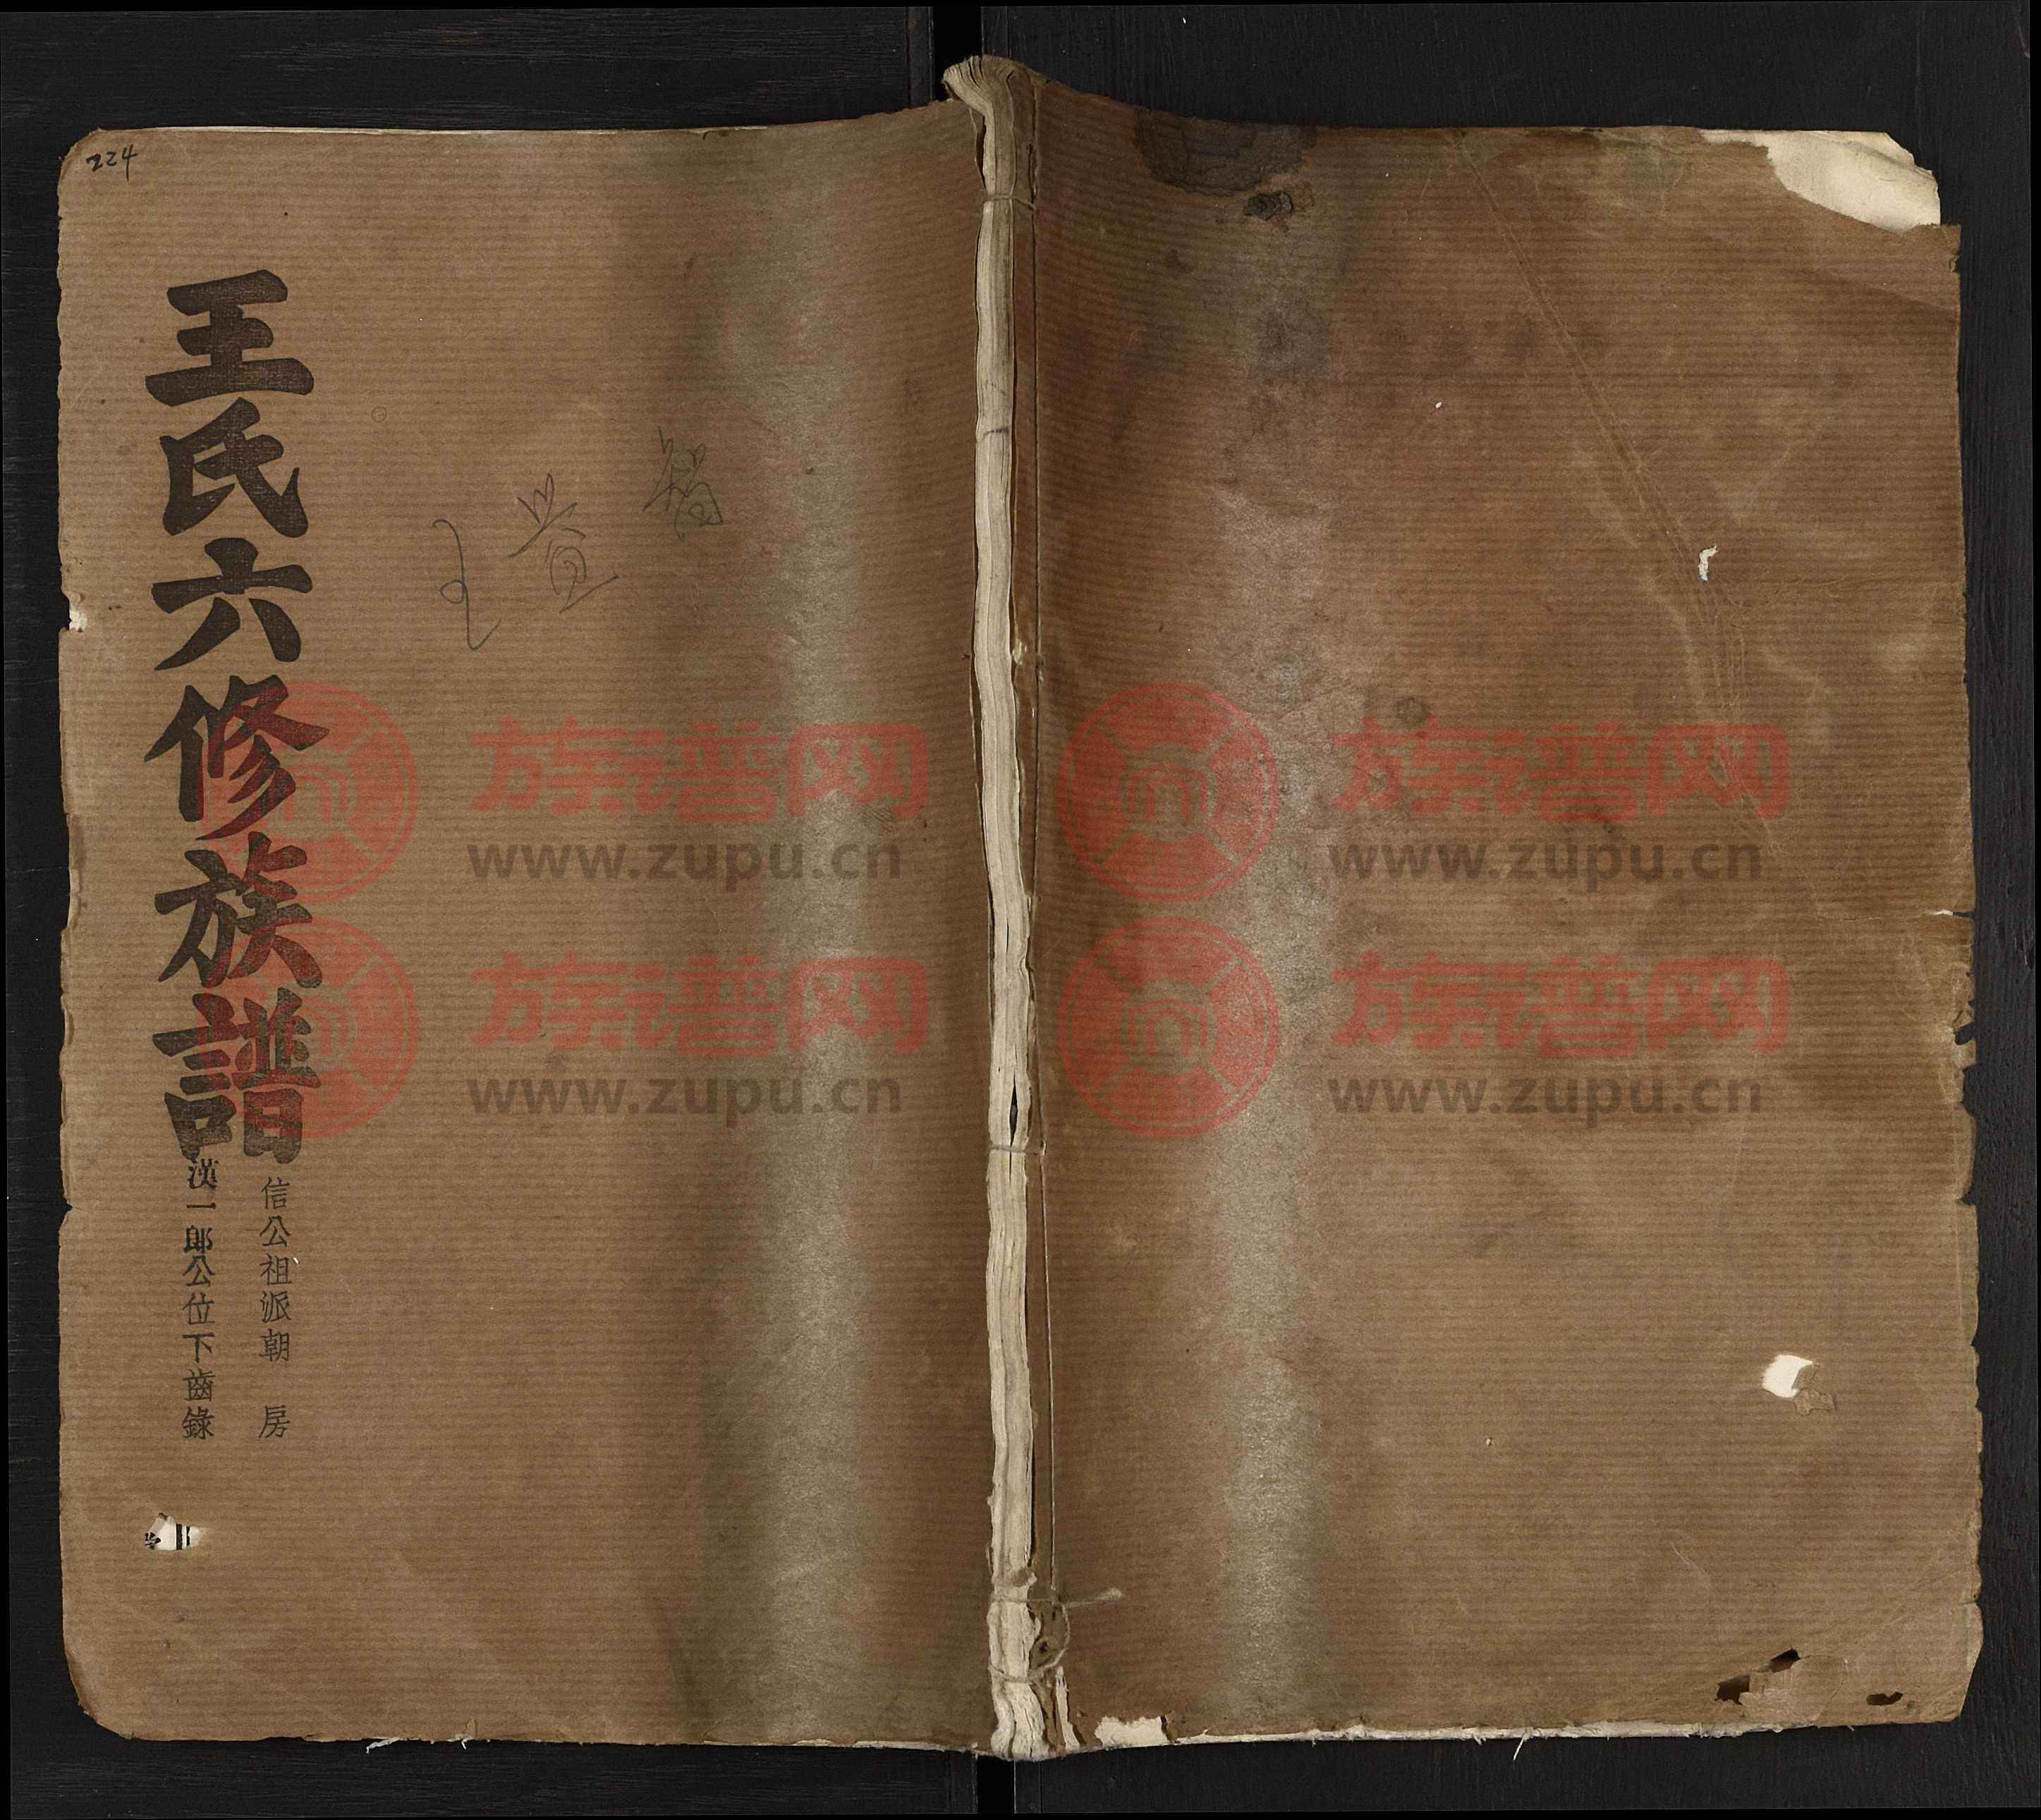 224
王氏六修族譜
信公祖派朝 房
漢一郎公位下齒錄
王
族谱网 族谱网
www.zupu.cn www.zupu.cn
族谱网 族谱网
www.zupu.cn www.zupu.cn